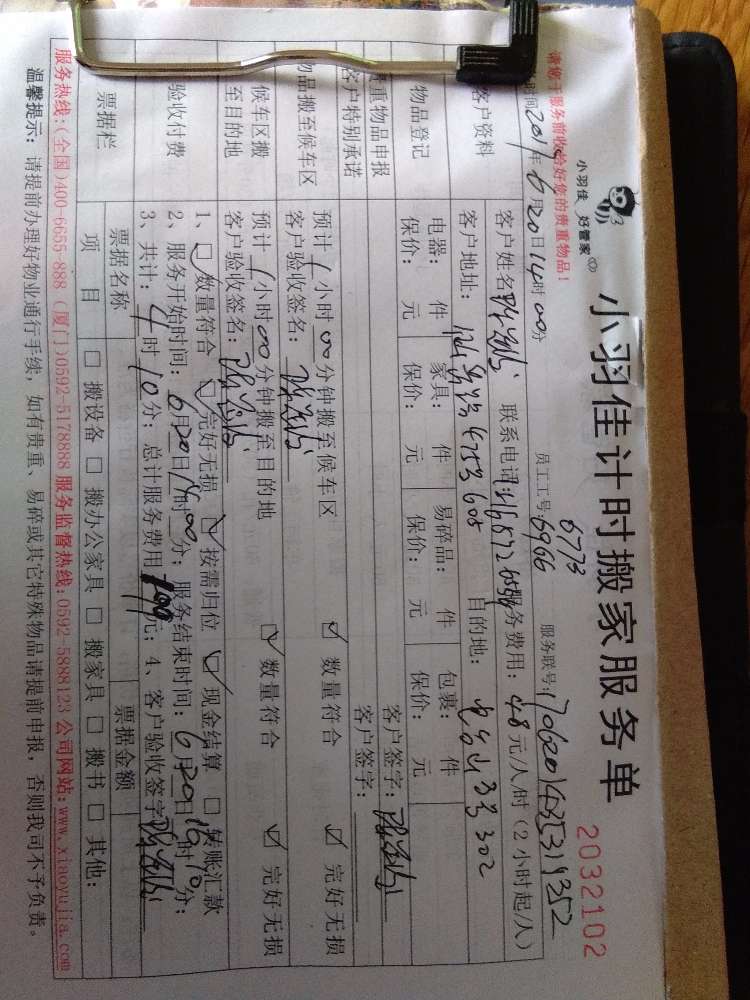 请您于服务前收拾好您的贵重物品!
小羽佳 好管家
小羽佳计时搬家服务单
2032102
员工工号: 6773
6966
服务联号:
时间 年6月20日14时00分
客户资料
客户姓名 联系电话: 服务费用: 48元/人/时(2小时起/人)
客户地址: 目的地:
物品登记
电器: 件 家具: 件 易碎品: 件 包裹: 件
保价: 元 保价: 元 保价: 元 保价: 元
贵重物品申报 客户签字:
客户特别承诺 客户签字:
物品搬至候车区
预计1小时00分钟搬至候车区 ☑ 数量符合 ☑ 完好无损
客户验收签名:
候车区搬至目的地
预计1小时00分钟搬至目的地 ☑ 数量符合 ☑ 完好无损
客户验收签名:
验收付费
1、☑ 数量符合 ☑ 完好无损 ☑ 按需归位 ☑ 现金结算 □ 转账汇款
2、服务开始时间: 6月20日14时00分; 服务结束时间: 6月20日16时10分;
3、共计: 4时10分; 总计服务费用 元; 4、客户验收签字
票据栏
票据名称 票据金额
项 目 □ 搬设备 □ 搬办公家具 □ 搬家具 □ 搬书 □ 其他:
服务热线:(全国)400-6655-888 (厦门)0592-5178888 服务监督热线:0592-5888123 公司网站:www.xiaoyujia.com
温馨提示: 请提前办理好物业通行手续, 如有贵重、易碎或其它特殊物品请提前申报, 否则我司不予负责。